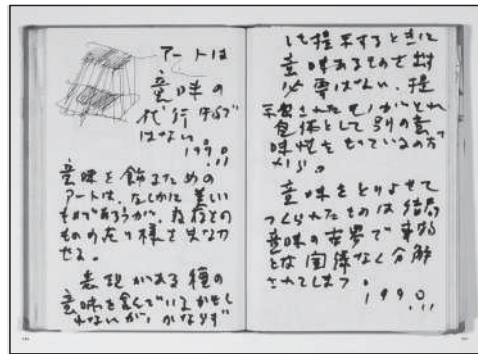 アートは
意味の
代行
はない
1990
.11
意味を飾るための
アートは、たしかに美しい
ものであろうが、存在その
ものの在り様を失なわ
せる。
表現がある種の
意味を含んでいるかもし
れないが、かならず
しも提示するときに
意味あるもので
必要はない、提
示されたものがそれ
自体として別の意
味性をもっているの
意味をとりよせて
つくられたものは結局
意味の世界で
なく分解
されてしまう。
1990
.11